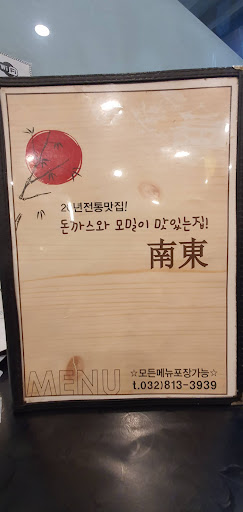 20년전통맛집!
돈까스와 모밀이 맛있는집!
南東
MENU
☆모든메뉴포장가능☆
t.032)813-3939